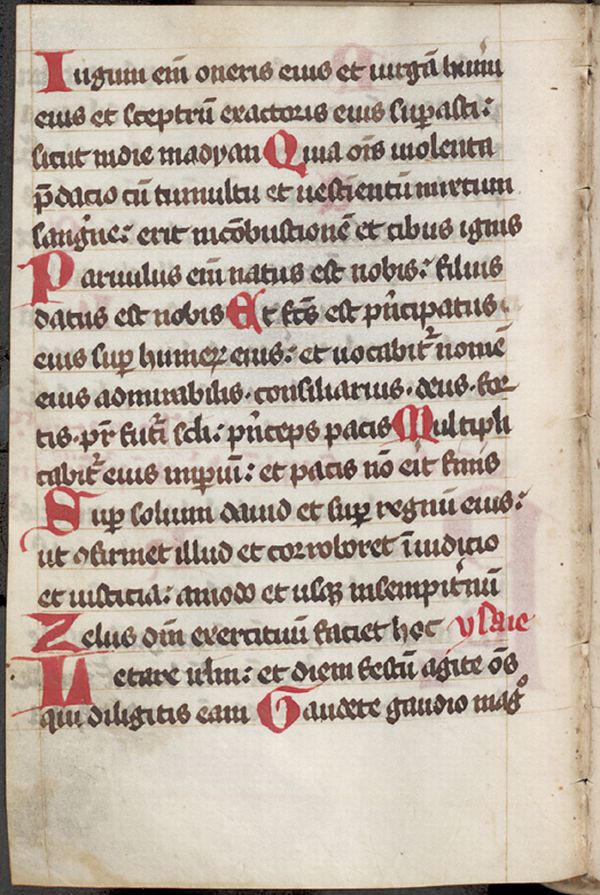 Iugum em̄ oneris eius et uirgā hum̄i
eius et sceptrū exactoris eius suꝑasti:
sicut indie madyan Quia oīs uiolenta
p̄dacio cū tumultu et uestientū mixtum
sangⁱne: erit incōbustionē et cibus ignis
Paruulus em̄ natus est nobis: filius
datus est nobis Et fc̄s est pⁱncipatus
eius suꝑ humeꝝ eius: et uocabitᷣ nomē
eius admirabilis · consiliarius · deus · for
tis · pr̄ futᷣi scl̄i: pⁱnceps pacis Multipli
cabitᷣ eius imꝑiū: et pacis nō eīt finis
Suꝑ solium dauid et suꝑ regnū eius:
ut ꝯfirmet illud et corroboret ī iudicio
et iusticia: amodo et usqꝫ insempitᷣnū
Zelus dn̄i exercituū faciet hoc ysaie
Letare ierlm̄: et diem festū agite om̄s
qui diligitis eam Gaudete gaudio magͦ